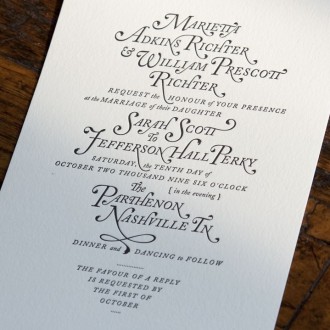 Marietta
Adkins Richter
& William Prescott
Richter
REQUEST the HONOUR of YOUR PRESENCE
at the MARRIAGE of their DAUGHTER
Sarah Scott
To
Jefferson Hall Perry
SATURDAY, the TENTH DAY of
OCTOBER TWO THOUSAND NINE SIX O'CLOCK
[ in the evening ]
The
Parthenon
Nashville Tn
DINNER and DANCING to FOLLOW
THE FAVOUR OF A REPLY
IS REQUESTED BY
THE FIRST OF
OCTOBER